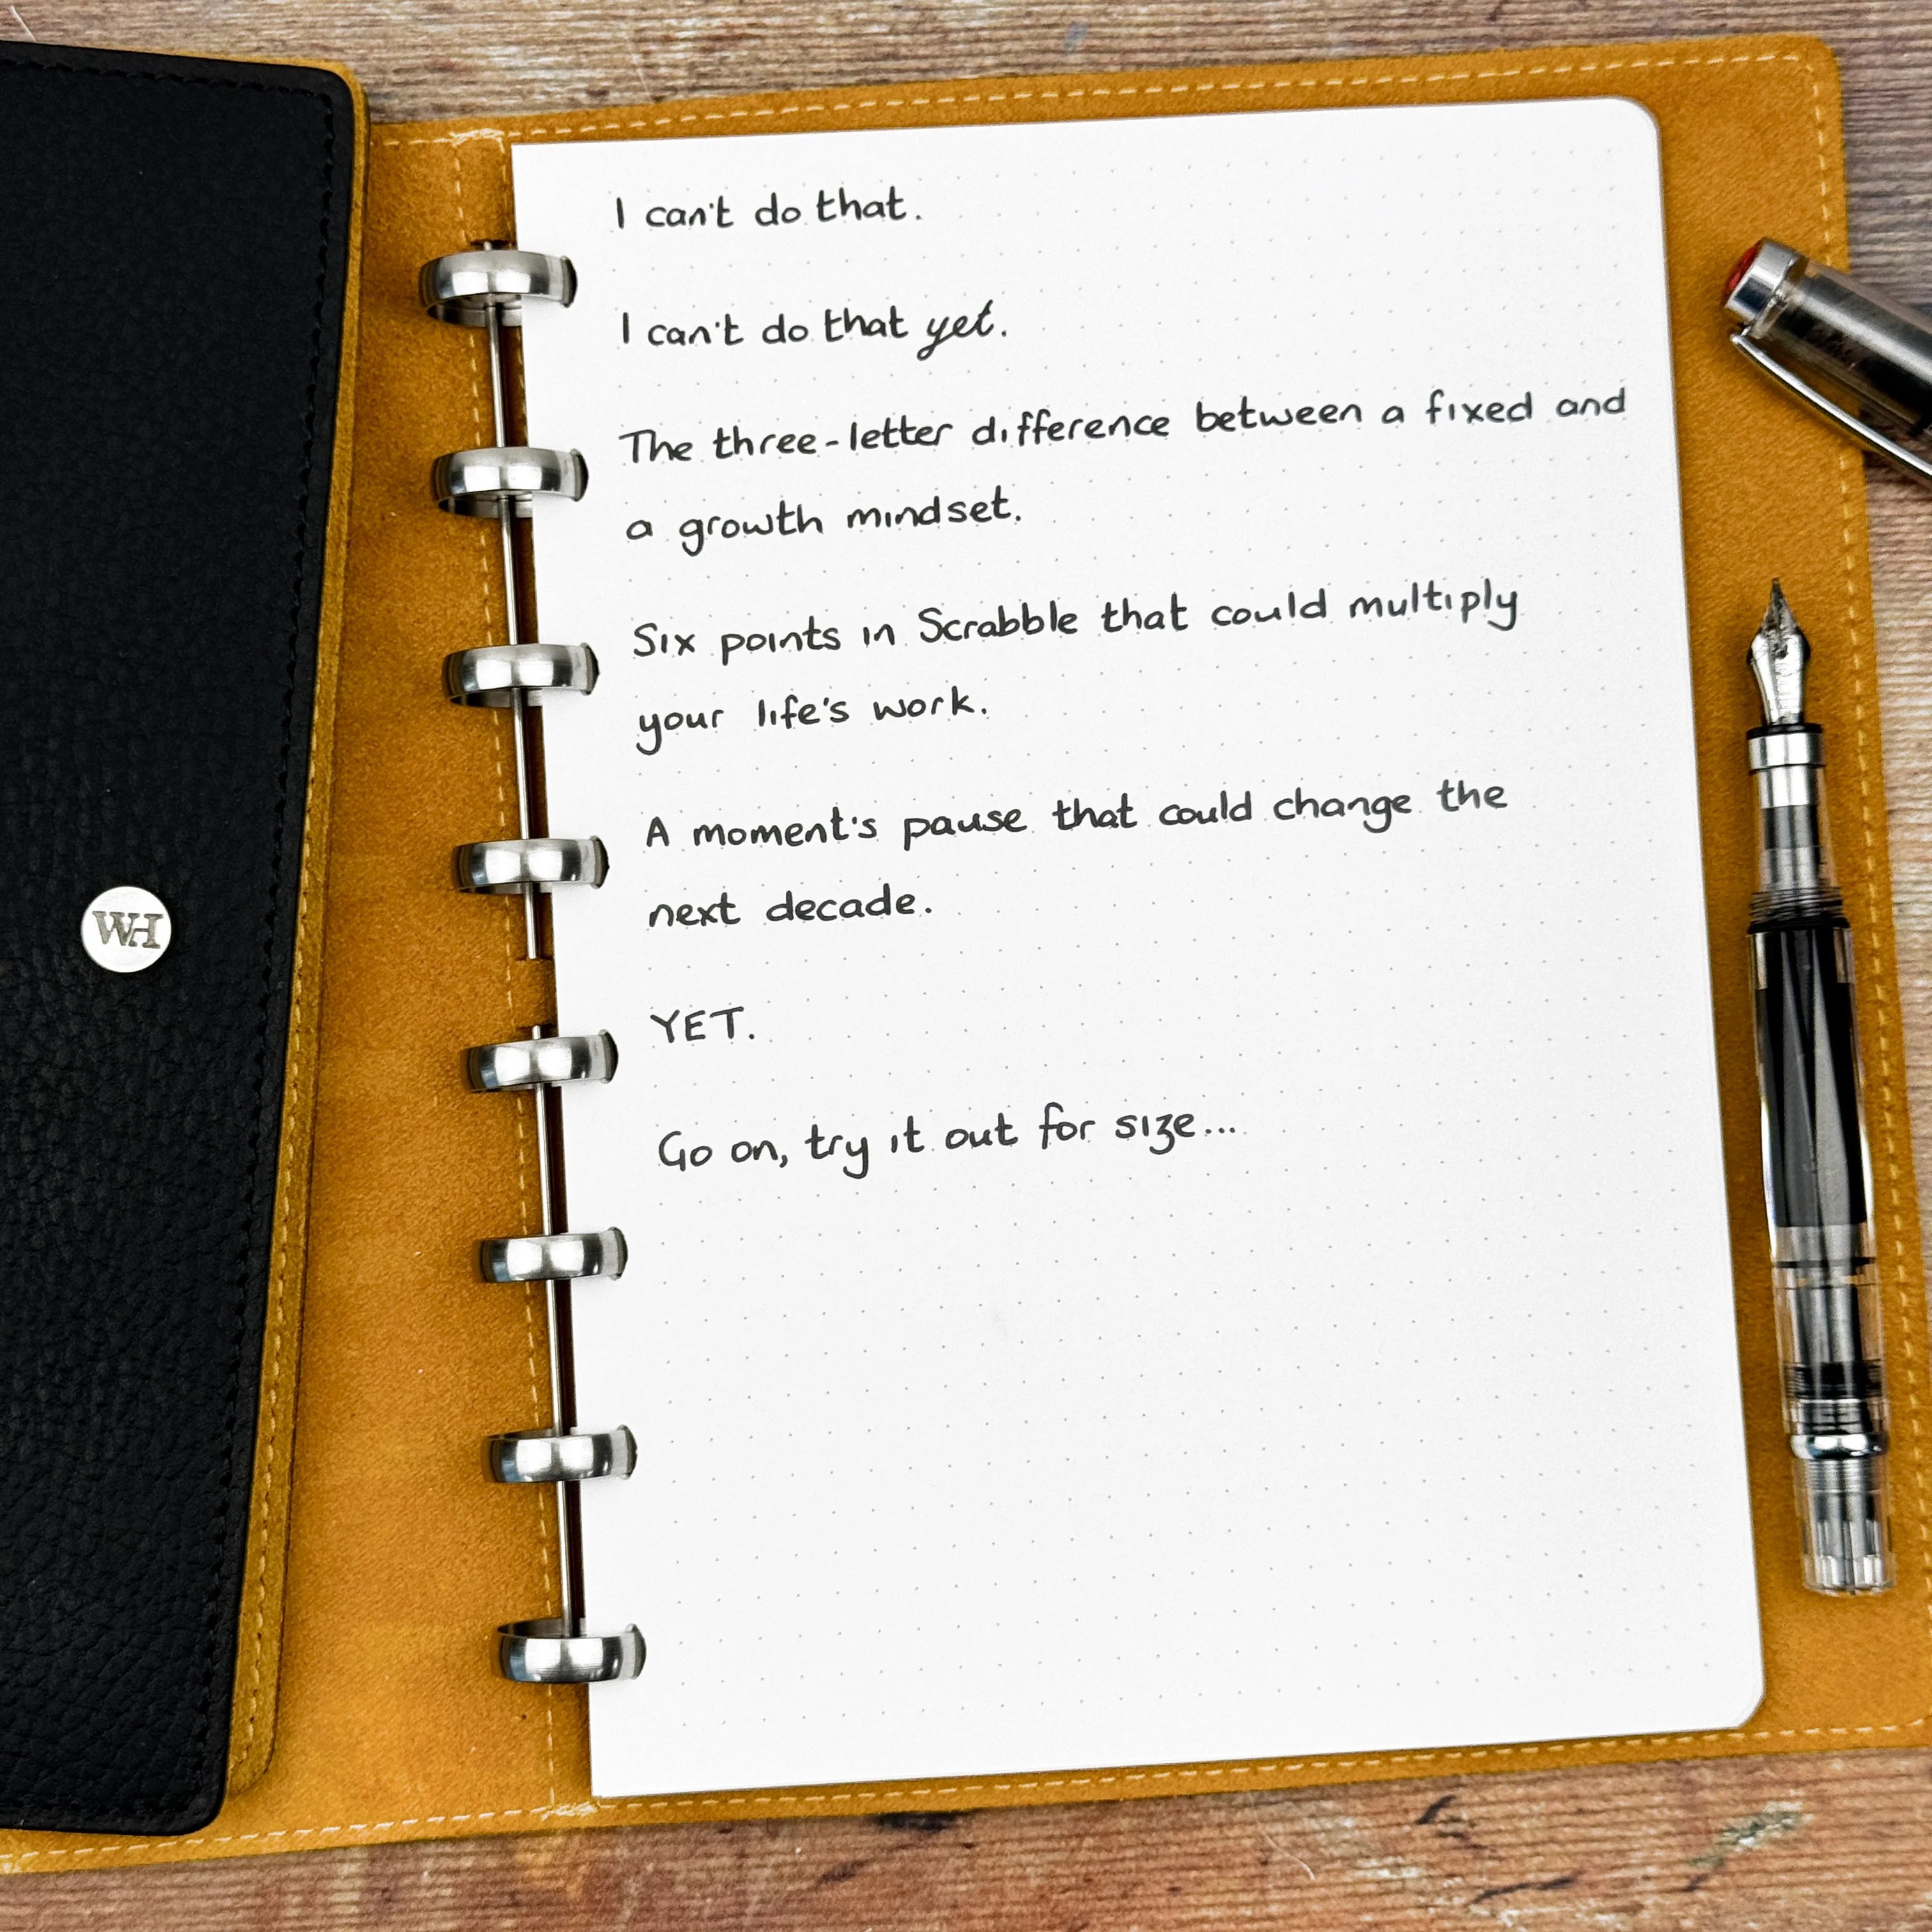 WH
I can't do that.
I can't do that yet.
The three-letter difference between a fixed and
a growth mindset.
Six points in Scrabble that could multiply
your life's work.
A moment's pause that could change the
next decade.
YET.
Go on, try it out for size...